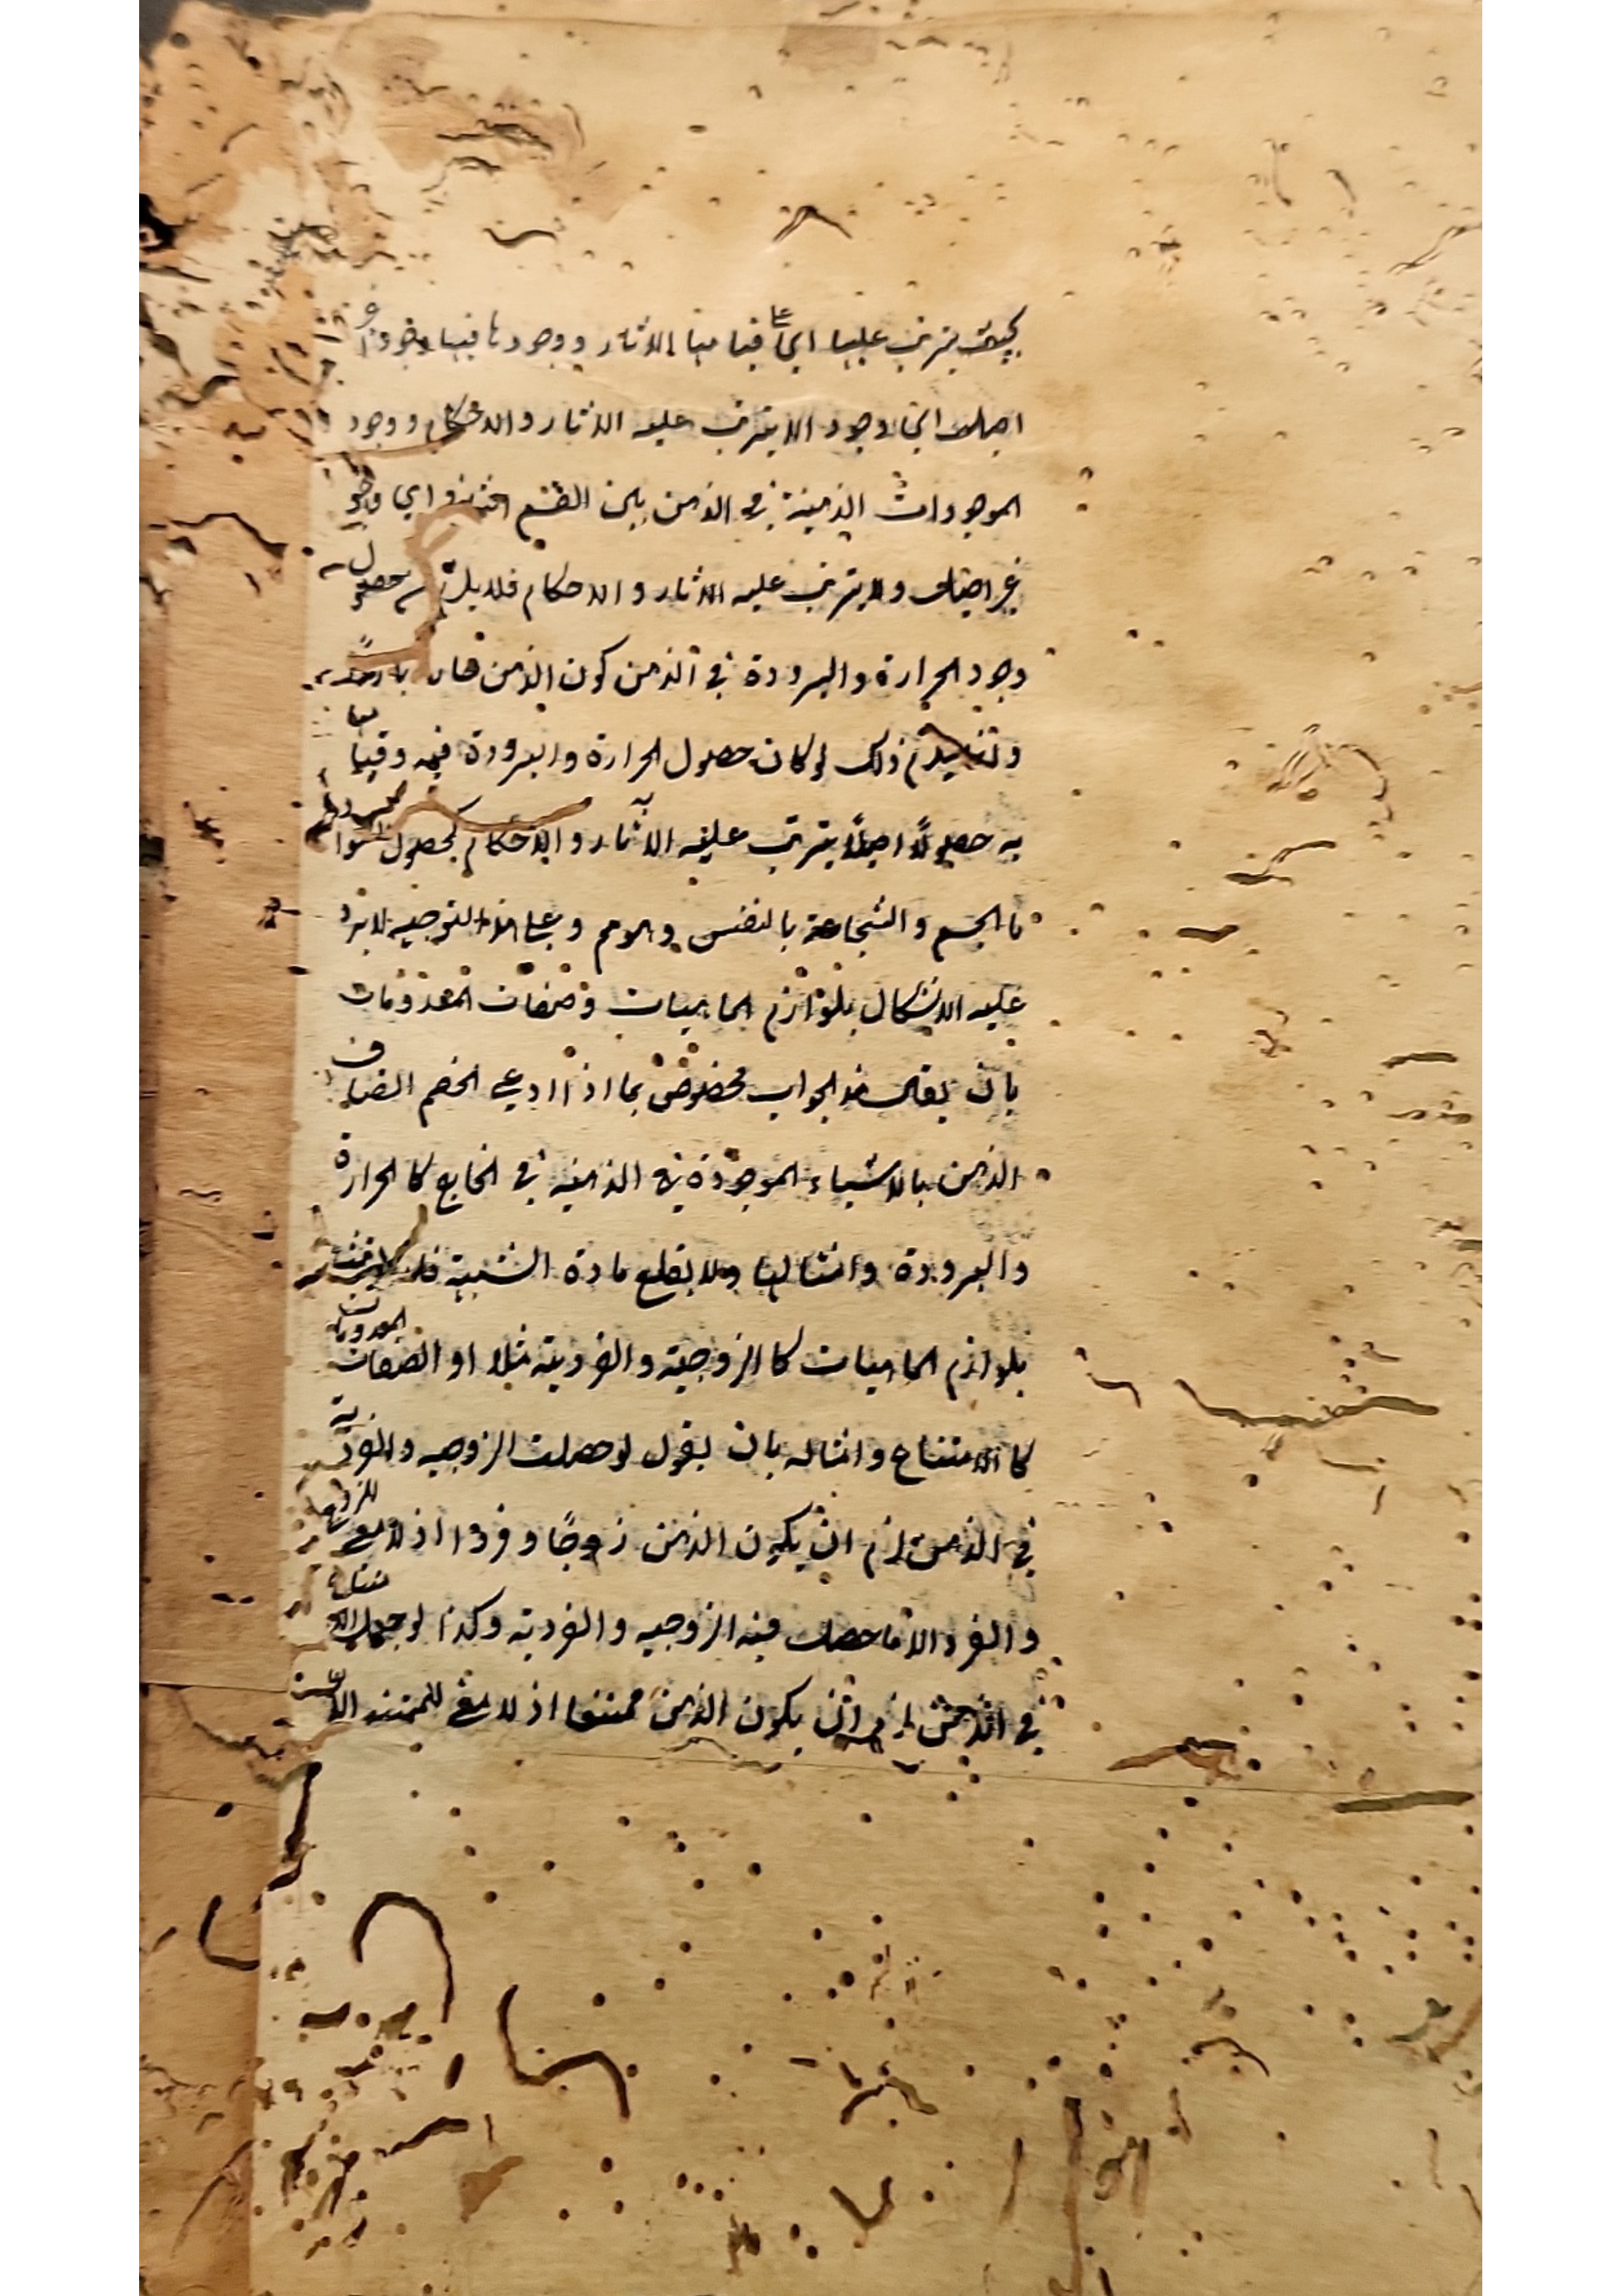 بحيث يترتب عليها اي على قيامها الاثار ووجودها فيها وجود
اصيلا اي وجود الا يترتب عليه الاثار والاحكام ووجود
الموجودات الذهنية في الذهن ليس القسم اي وجو
غير اصيل ولا يترتب عليه الاثار والاحكام فلا يلزم حصول
وجود الحرارة والبرودة في الذهن كون الذهن حارا باردا
وانما يلزم ذلك لو كان حصول الحرارة والبرودة فيه وقيامها
به حصولًا اصيلًا يترتب عليه الاثار والاحكام كحصول السواد
با الجسم والشجاعة بالنفس وعلى هذا التوجيه لا يرد
عليه الاشكال بلوازم الماهيات وصفات المعدومات
بان يقال هذا الجواب مخصوص بما اذا ادعى الخصم اتصاف
الذهن بالاشياء الموجودة في الذهنيه في الخارج كا الحرارة
والبرودة وامثالها ولا يقطع مادة الشبهة
بلوازم الماهيات كا الزوجية والفردية مثلا او الصفات المعدومات
كا الامتناع وامثاله بان يقول لو حصلت الزوجيه والفردية
في الذهن لزم ان يكون الذهن زوجًا وفردا اذ لا معنى للزوج
والفرد الا ما حصلت فيه الزوجيه والفردية وكذا لو حصل الامتناع
في الذهن لزم ان يكون الذهن ممتنعا اذ لا معنى للممتنع الا